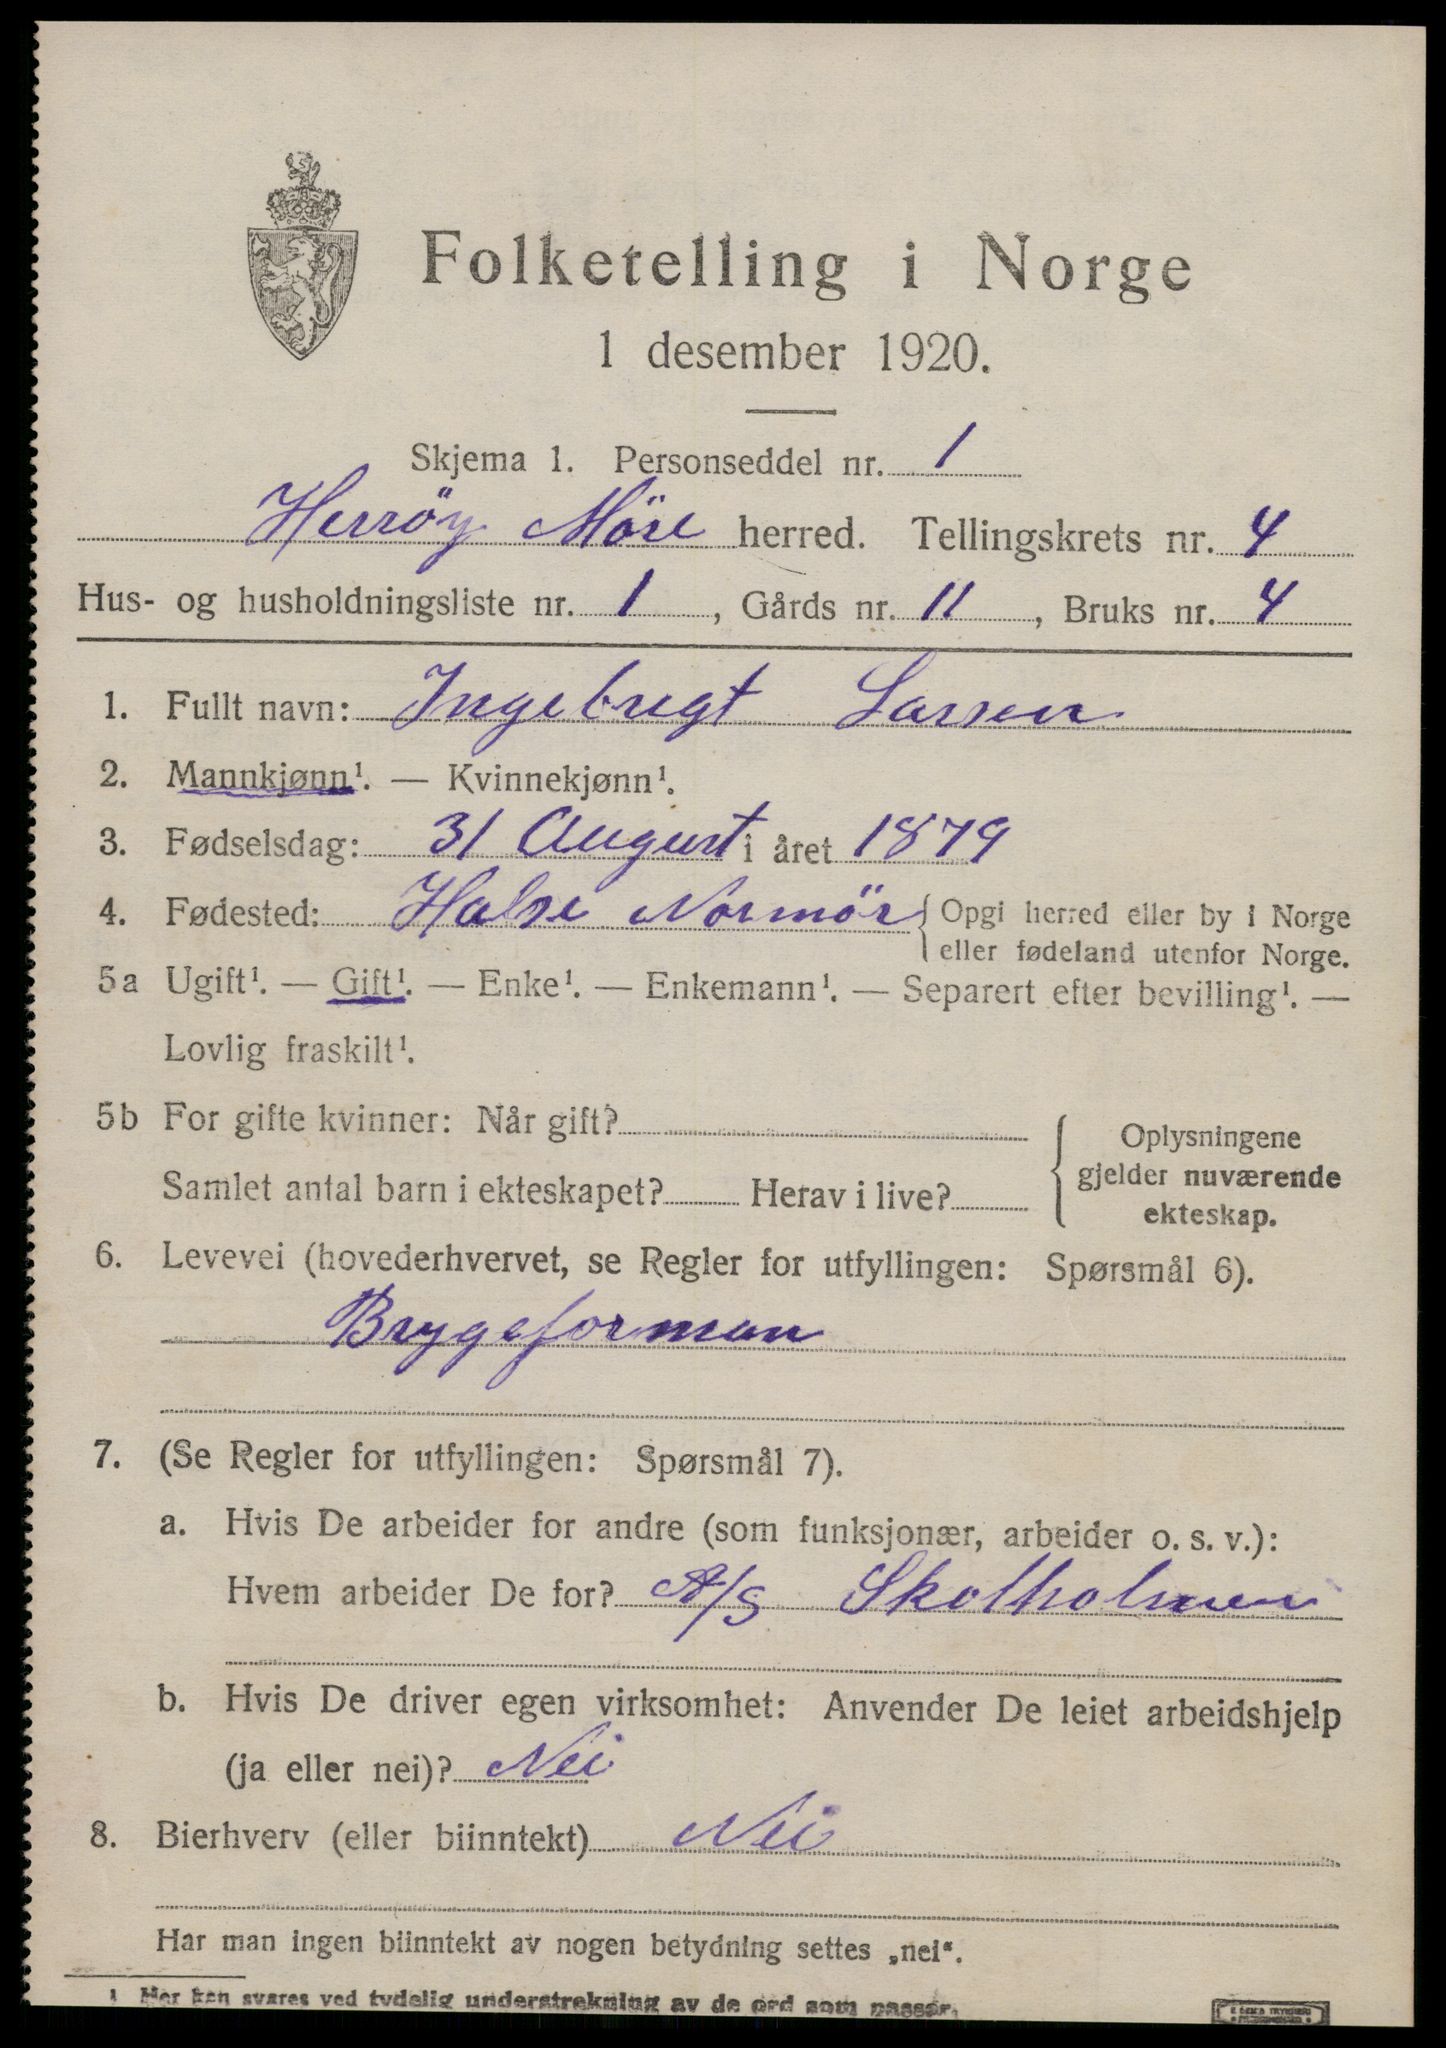 Folketelling i Norge
1 desember 1920.
Skjema 1. Personseddel nr. 1
Herröy Möre herred. Tellingskrets nr. 4
Hus- og husholdningsliste nr. 1, Gårds nr. 11, Bruks nr. 4
1. Fullt navn: Ingebrigt Larsen
2. Mannkjønn¹. — Kvinnekjønn¹.
3. Fødselsdag: 31 August i året 1879
4. Fødested: Halse Normör { Opgi herred eller by i Norge
eller fødeland utenfor Norge.
5a Ugift¹. — Gift¹. — Enke¹. — Enkemann¹. — Separert efter bevilling¹. —
Lovlig fraskilt¹.
5b For gifte kvinner: Når gift?
Samlet antal barn i ekteskapet? Herav i live?
Oplysningene
gjelder nuværende
ekteskap.
6. Levevei (hovederhvervet, se Regler for utfyllingen: Spørsmål 6).
Brygeforman
7. (Se Regler for utfyllingen: Spørsmål 7).
a. Hvis De arbeider for andre (som funksjonær, arbeider o. s. v.):
Hvem arbeider De for? A/S Skolholmen
b. Hvis De driver egen virksomhet: Anvender De leiet arbeidshjelp
(ja eller nei)? Nei
8. Bierhverv (eller biinntekt) Nei
Har man ingen biinntekt av nogen betydning settes „nei“.
1 Her kan svares ved tydelig understrekning av de ord som passer.